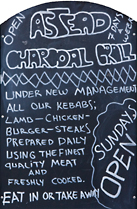 OPEN
7 DAYS A WEEK
ASPEAD
CHARCOAL GRILL
UNDER NEW MANAGEMENT
ALL OUR KEBABS;
LAMB-CHICKEN-
BURGER-STEAKS
PREPARED DAILY
USING THE FINEST
QUALITY MEAT
AND
FRESHLY COOKED.
SUNDAYS
OPEN
EAT IN OR TAKE AWAY